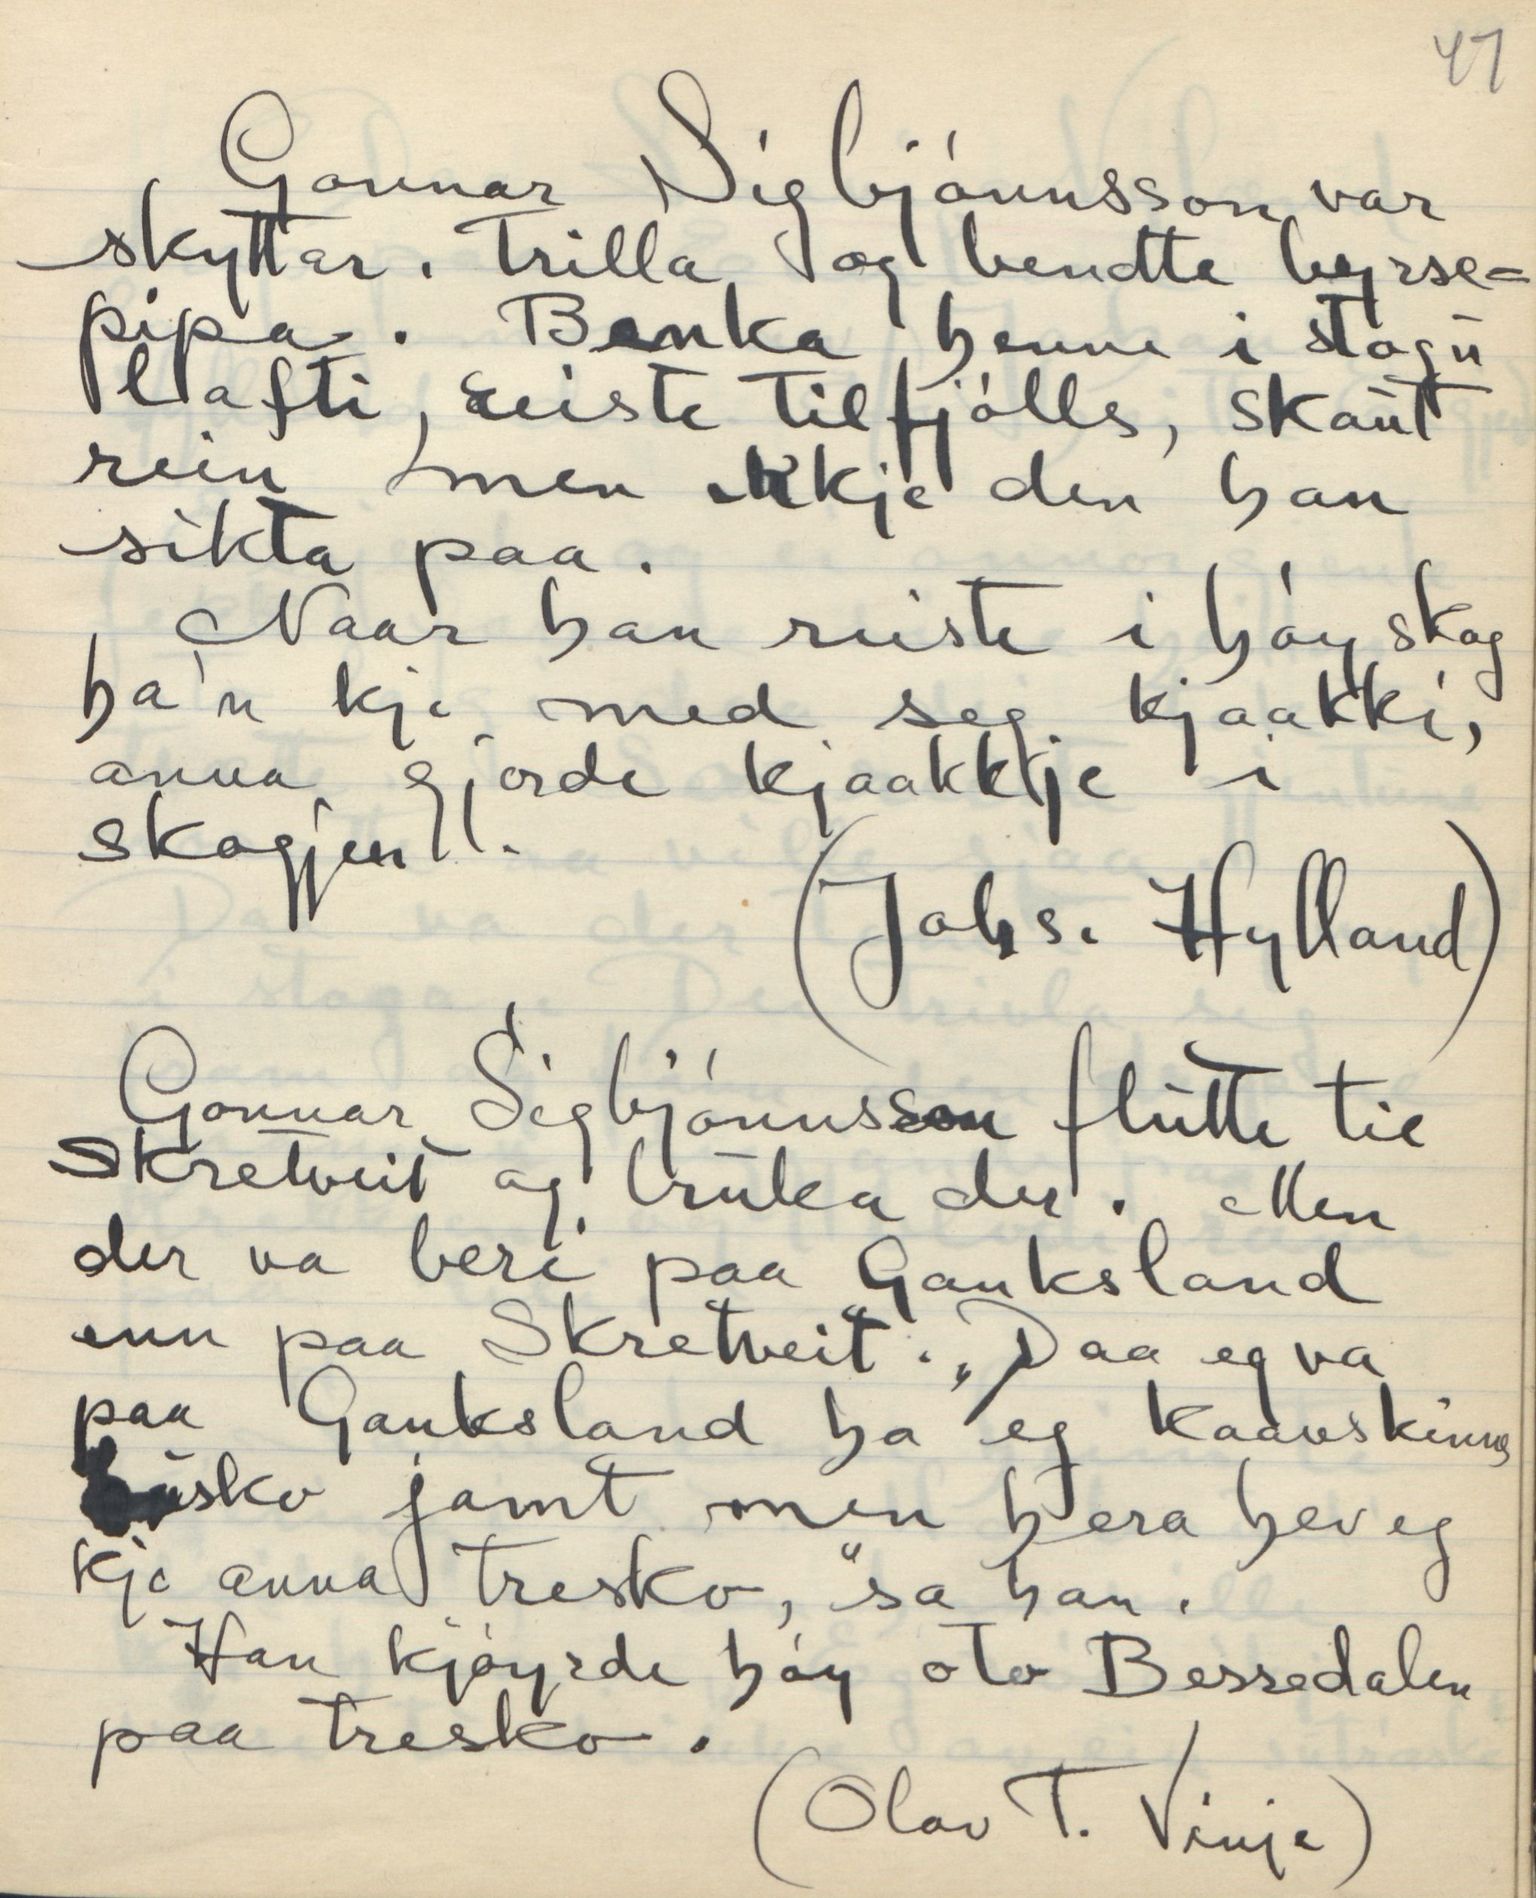 47
Gonnar Sigbjónnsson var
skyttar. Trilla og bendte byrse=
pipa. Benka henne i stogū
lofti, reiste tilfjólls, skaut
rein men ikkje den han
sikta paa.
Naar han reiste i hóyskog
ha'n kje med seg kjaakki,
anna gjorde kjaakktje i
skogjen.
(Johs. Hylland)
Gonnar Sigbjónnsson flūtte til
Skretveit og brūka der. Men
der va beri paa Gauksland
enn paa Skretveit. „Daa eg va
paa Gauksland ha eg kaavskinns
būsko jamt men hera hev eg
kje anna tresko," sa han.
Han kjóyrde hóy oto Bessedalen
paa tresko.
(Olav T. Vinje)